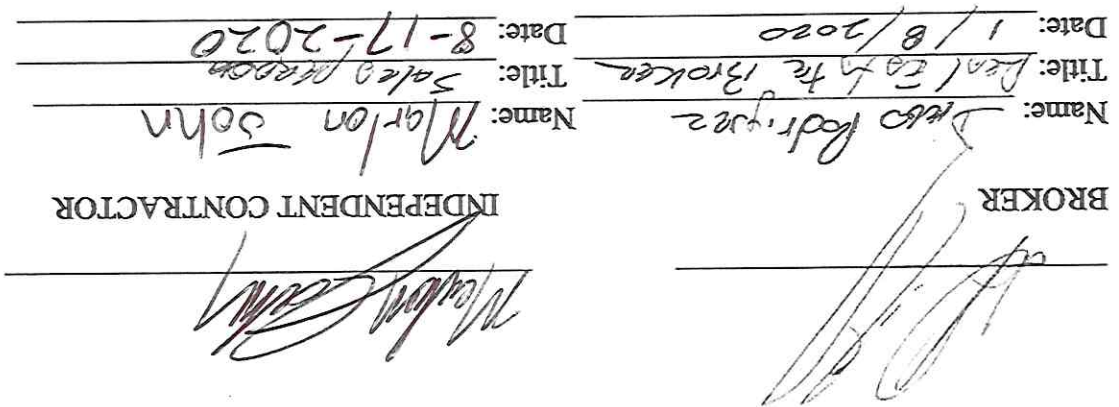 BROKER
Name: Diego Rodriguez
Title: Real Estate Broker
Date: 1/8/2020
INDEPENDENT CONTRACTOR
Name: Marlon John
Title: Salesperson
Date: 8-17-2020